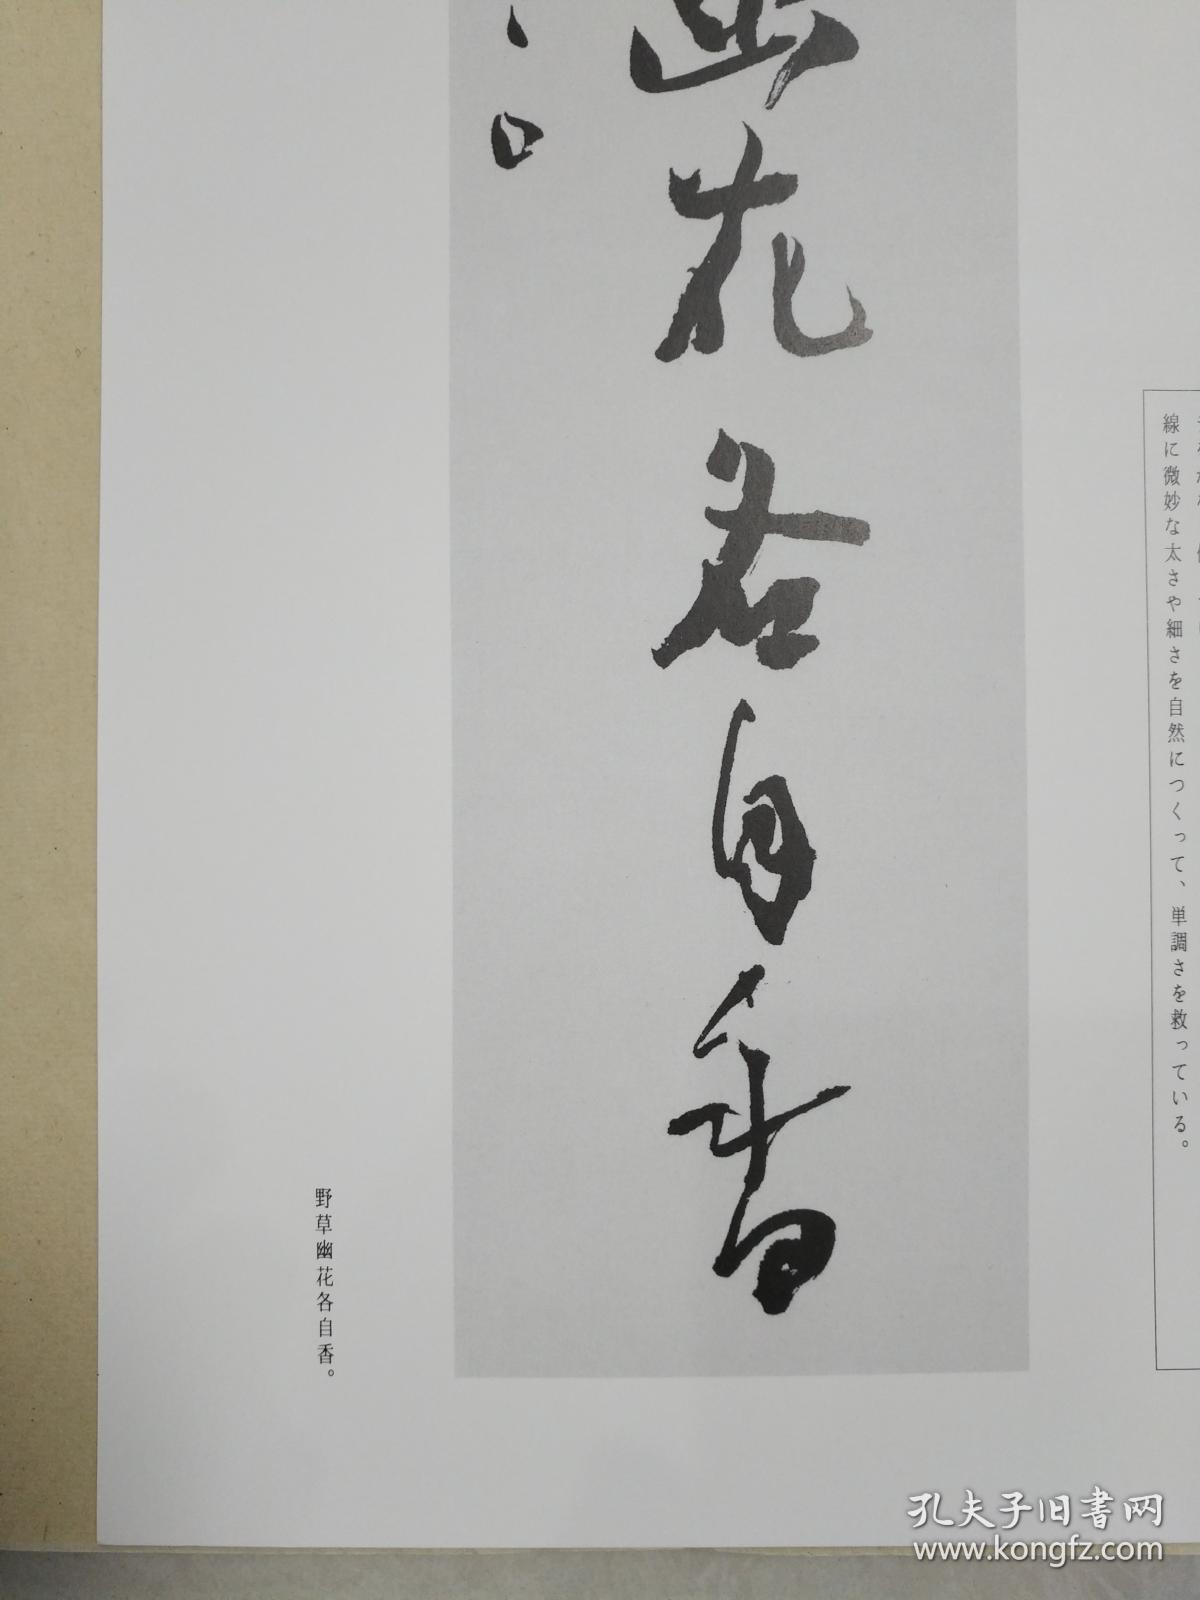 線に微妙な太さや細さを自然につくって、単調さを救っている。
幽花各自香
野草幽花各自香。
孔夫子旧书网
www.kongfz.com